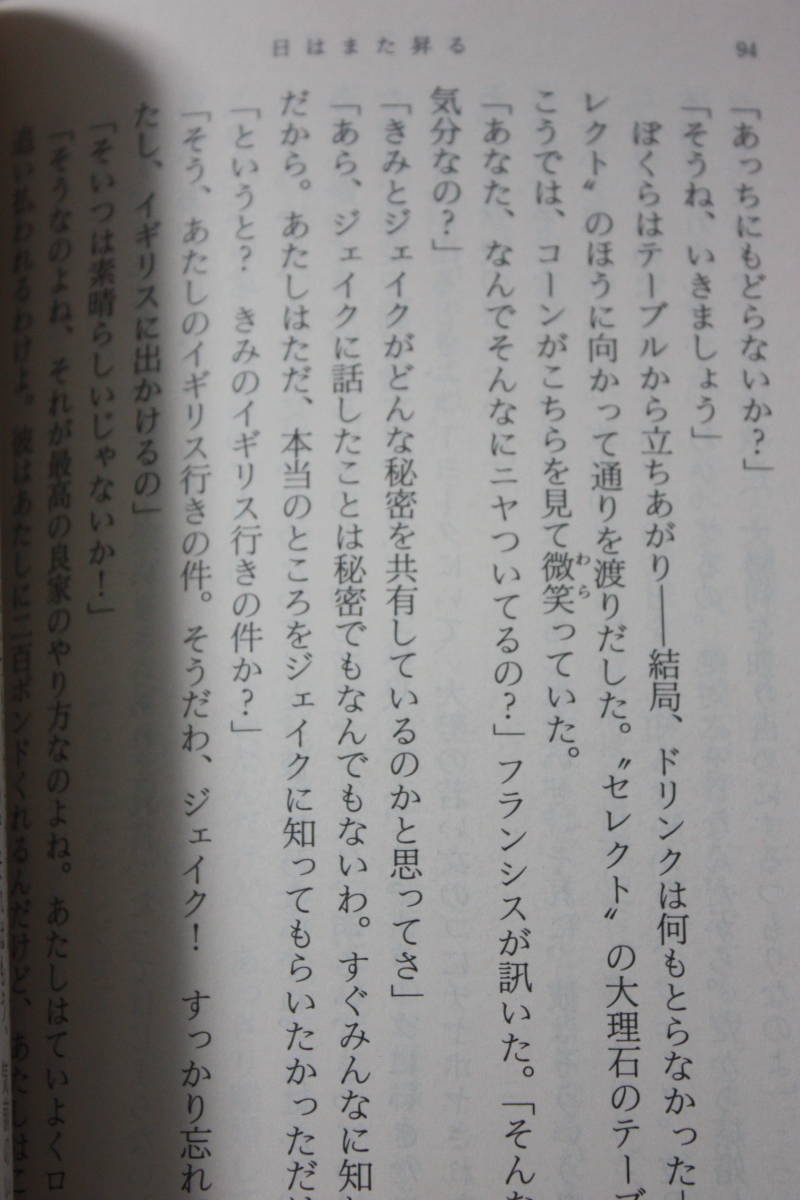 日はまた昇る
94
「あっちにもどらないか？」
「そうね、いきましょう」
ぼくらはテーブルから立ちあがり――結局、ドリンクは何もとらなかった
レクト〟のほうに向かって通りを渡りだした。〝セレクト〟の大理石のテーブ
こうでは、コーンがこちらを見て微笑っていた。
わら
「あなた、なんでそんなにニヤついてるの？」フランシスが訊いた。「そんな
気分なの？」
「きみとジェイクがどんな秘密を共有しているのかと思ってさ」
「あら、ジェイクに話したことは秘密でもなんでもないわ。すぐみんなに知れ
だから。あたしはただ、本当のところをジェイクに知ってもらいたかっただけ
「というと？　きみのイギリス行きの件か？」
「そう、あたしのイギリス行きの件。そうだわ、ジェイク！　すっかり忘れ
たし、イギリスに出かけるの」
「そいつは素晴らしいじゃないか！」
「そうなのよね、それが最高の良家のやり方なのよね。あたしはていよくロ
追い払われるわけよ。彼はあたしに二百ポンドくれるんだけど、あたしはこ